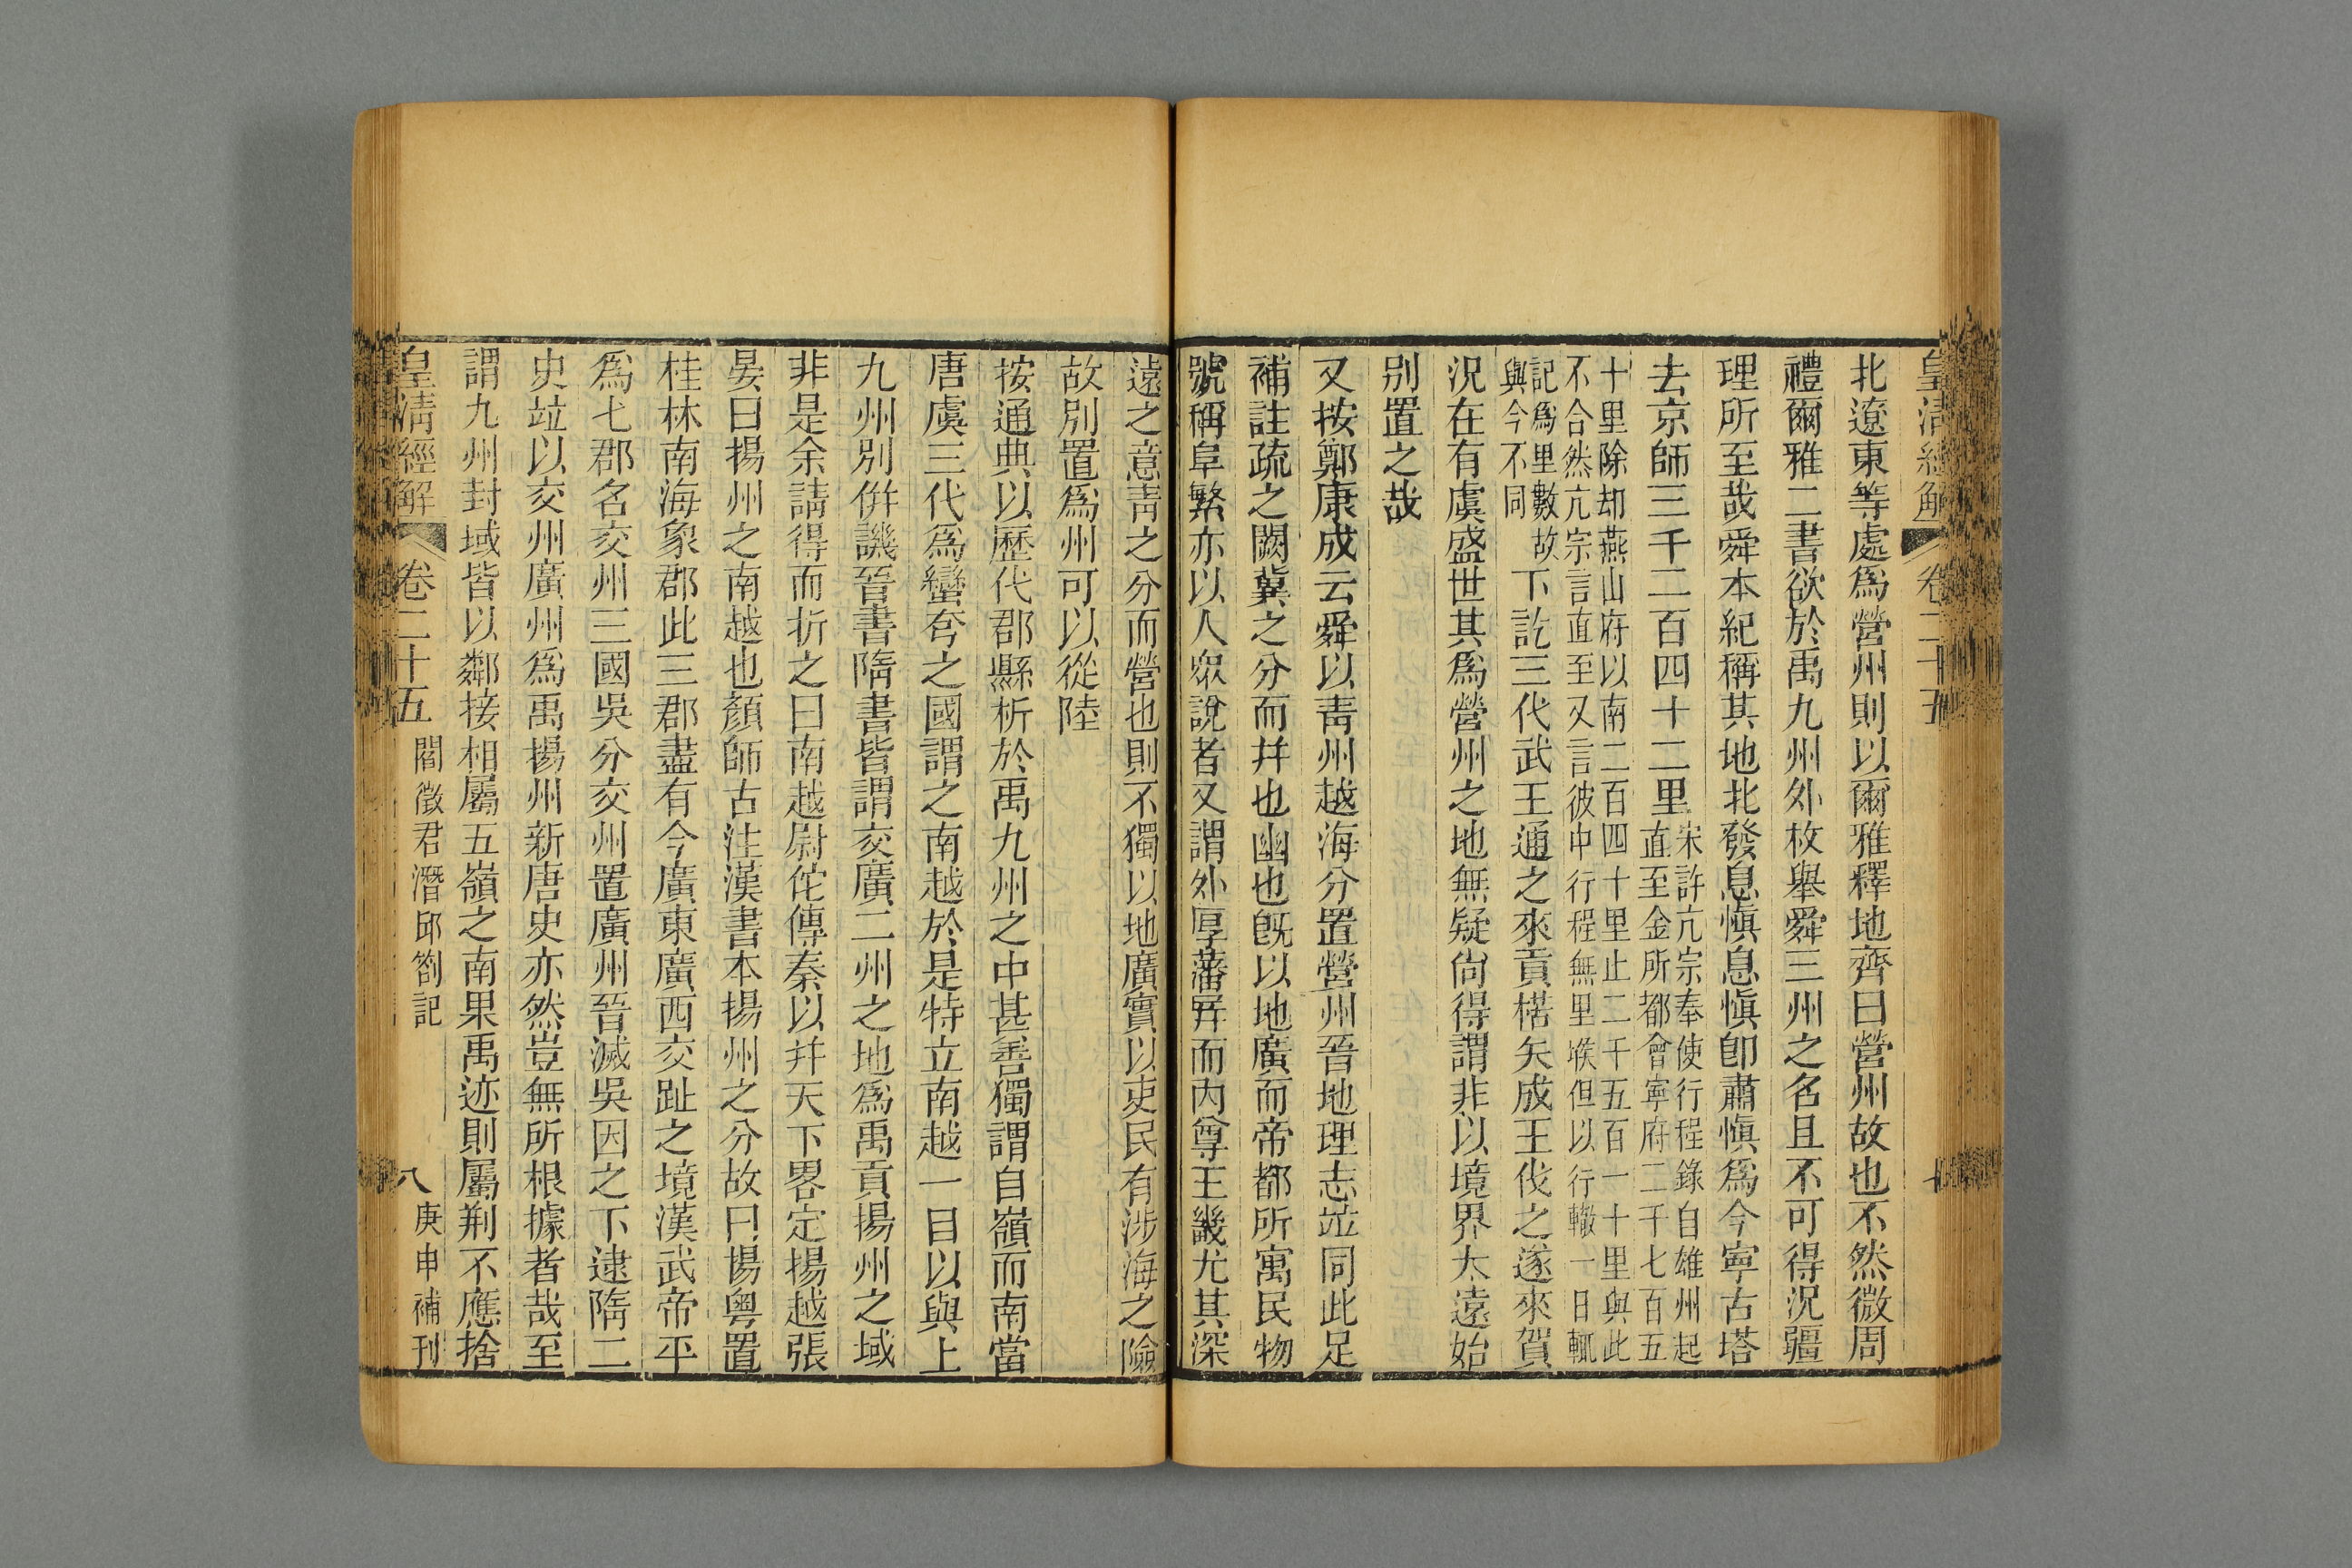 皇清經解 卷二十五
北遼東等處爲營州則以爾雅釋地齊曰營州故也不然微周
禮爾雅二書欲於禹九州外枚舉舜三州之名且不可得況疆
理所至哉舜本紀稱其地北發息愼息愼卽肅愼爲今寧古塔
去京師三千二百四十二里宋許亢宗奉使行程錄自雄州起
直至金所都會寧府二千七百五
十里除却燕山府以南二百四十里止二千五百一十里與此
不合然亢宗言直至又言彼中行程無里堠但以行轍一日輒
記爲里數故
與今不同
下訖三代武王通之來貢楛矢成王伐之遂來賀
況在有虞盛世其爲營州之地無疑尙得謂非以境界太遠始
別置之哉
又按鄭康成云舜以靑州越海分置營州晉地理志竝同此足
補註疏之闕冀之分而幷也幽也旣以地廣而帝都所寓民物
號稱阜繁亦以人眾說者又謂外厚藩屛而內尊王畿尤其深
遠之意靑之分而營也則不獨以地廣實以吏民有涉海之險
故別置爲州可以從陸
按通典以歷代郡縣析於禹九州之中甚善獨謂自嶺而南當
唐虞三代爲蠻夸之國謂之南越於是特立南越一目以與上
九州別倂譏晉書隋書皆謂交廣二州之地爲禹貢揚州之域
非是余請得而折之曰南越尉佗傳秦以幷天下畧定揚越張
晏曰揚州之南越也顏師古注漢書本揚州之分故曰揚粤置
桂林南海象郡此三郡盡有今廣東廣西交趾之境漢武帝平
爲七郡名交州三國吳分交州置廣州晉滅吳因之下逮隋二
史竝以交州廣州爲禹揚州新唐史亦然豈無所根據者哉至
謂九州封域皆以鄰接相屬五嶺之南果禹迹則屬荆不應捨
皇清經解 卷二十五 閻徵君潛邱劄記 八 庚申補刊